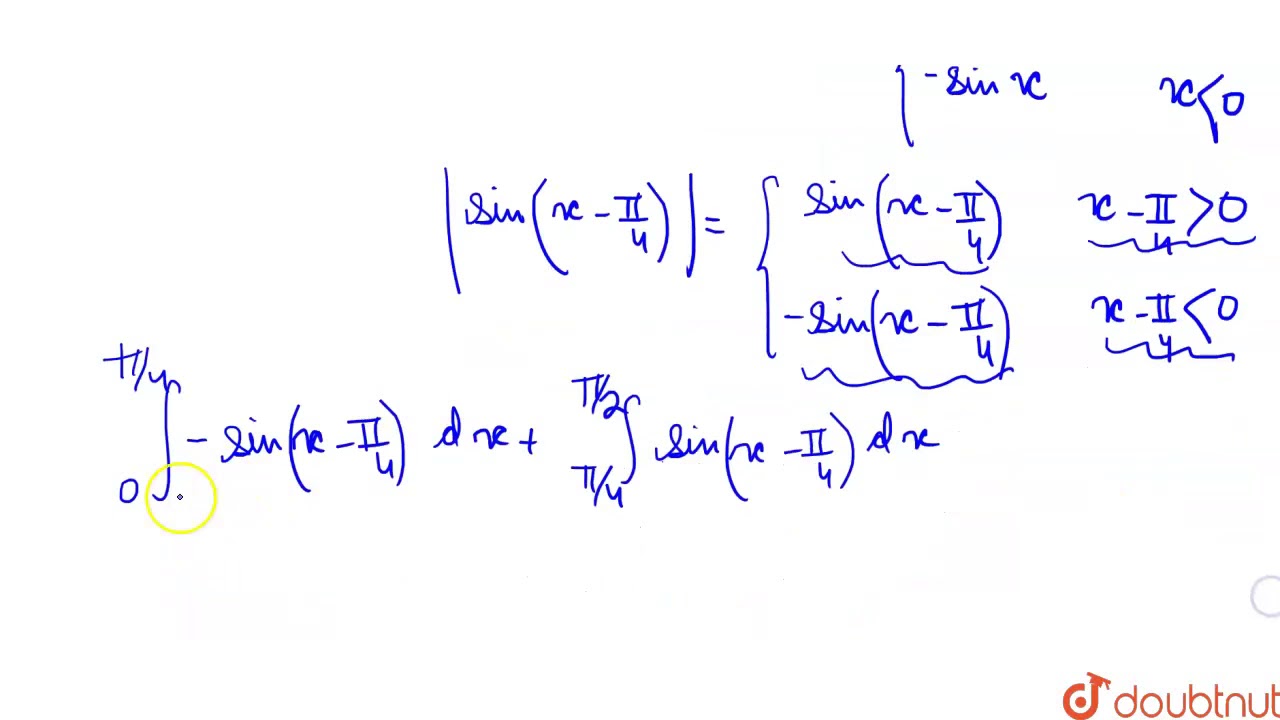 -sin x    x<0
|sin(x - π/4)| = { sin(x - π/4)    x - π/4 > 0
-sin(x - π/4)    x - π/4 < 0
∫₀^{π/4} - sin(x - π/4) dx + ∫_{π/4}^{π/2} sin(x - π/4) dx
doubtnut